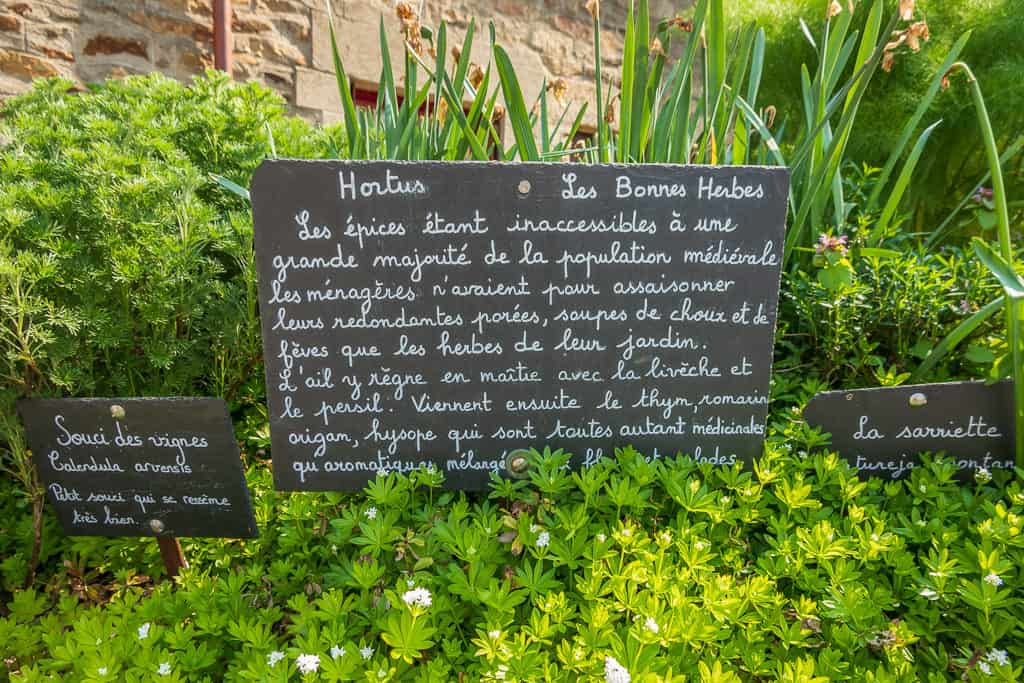 Hortus Les Bonnes Herbes
Les épices étant inaccessibles à une
grande majorité de la population médiévale
les ménagères n'avaient pour assaisonner
leurs redondantes porées, soupes de choux et de
fèves que les herbes de leur jardin.
L'ail y règne en maître avec la livèche et
le persil. Viennent ensuite le thym, romarin
origan, hysope qui sont toutes autant médicinales
qu'aromatiques
Souci des vignes
Calendula arvensis
Petit souci qui se ressème
très bien.
La sarriette